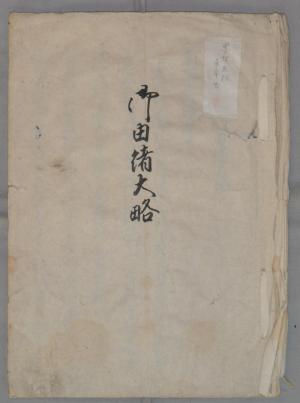 御由緒大略